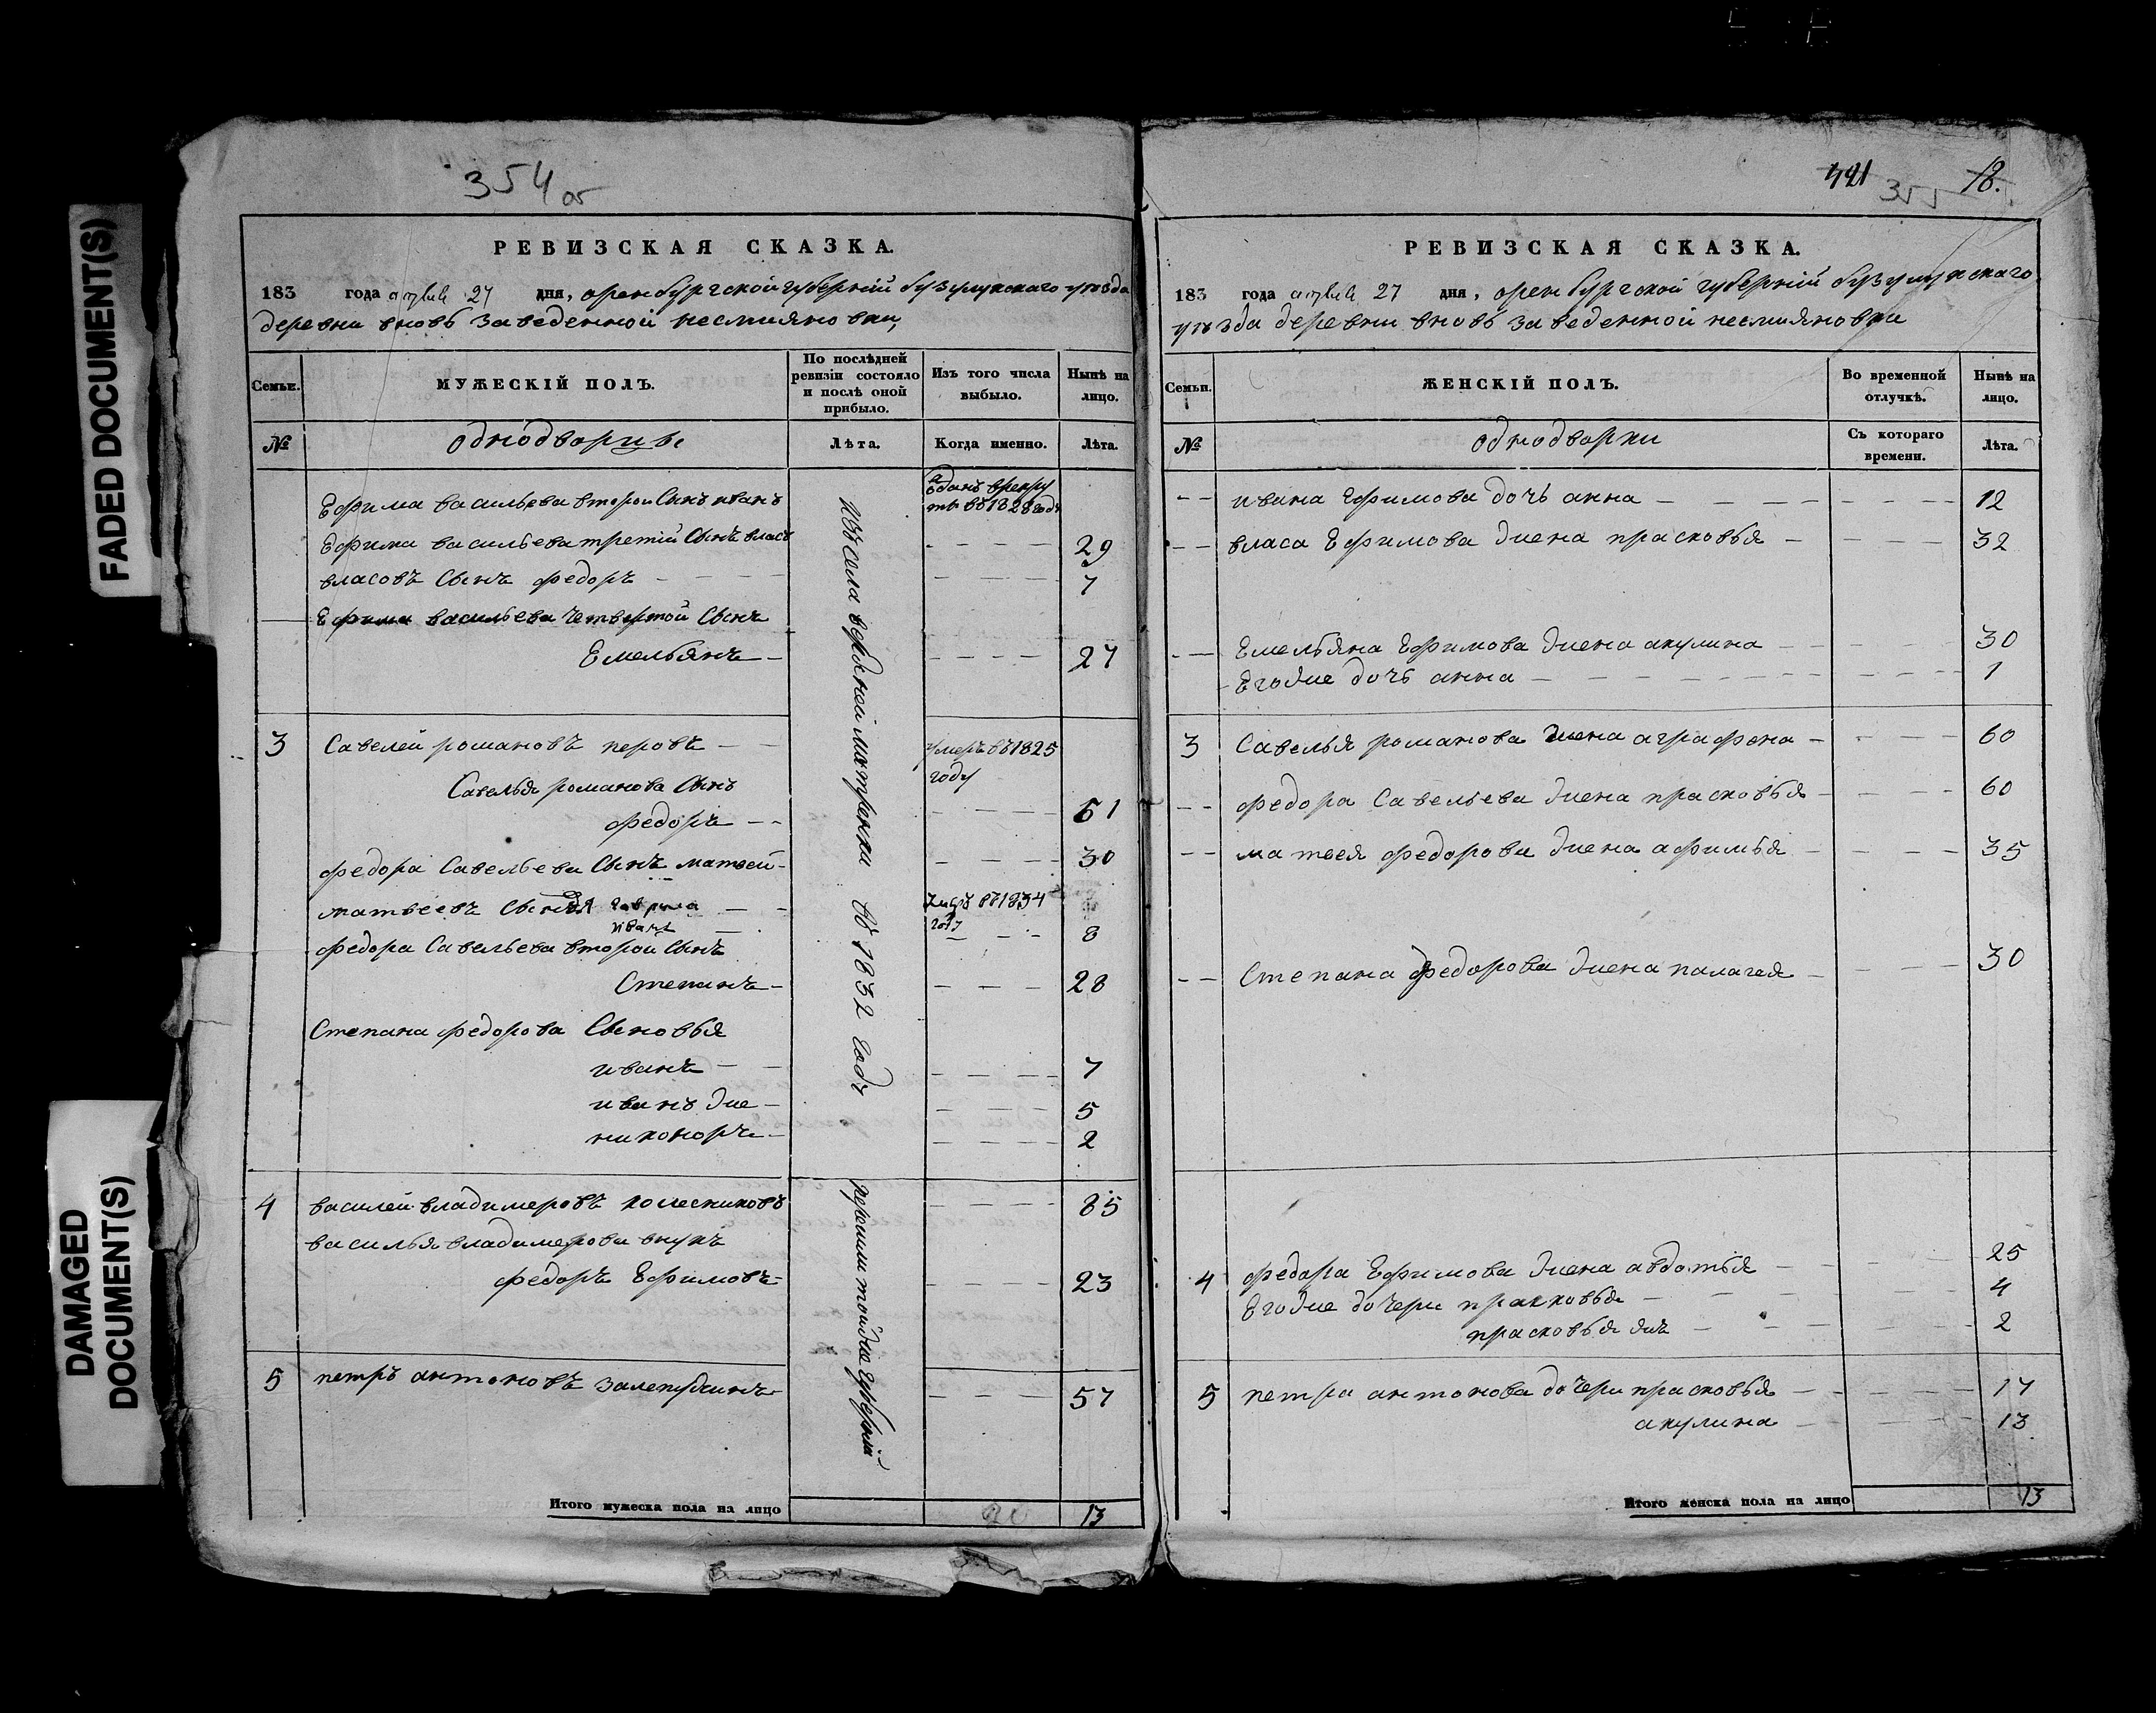 FADED DOCUMENT(S)
DAMAGED
DOCUMENT(S)
354 об
РЕВИЗСКАЯ СКАЗКА.
183 года 27 дня, оренбургской губерній бузулукскаго уезда
деревни вновь заведенной несмияновки,
Семьи.
МУЖЕСКІЙ ПОЛЪ.
По послѣдней
ревизіи состояло
и послѣ оной
прибыло.
Изъ того числа
выбыло.
Нынѣ на
лицо.
№
однодворцы
Лѣта.
Когда именно.
Лѣта.
Ефима васильева второй Сынъ иванъ
зданъ врекру
ты въ 1828 годъ
Ефима васильева третій Сынъ власъ - - - - 29
власовъ Сынъ федоръ - - - - 7
Ефима васильева четвертой Сынъ
Емельянъ - - - - 27
3 Савелей романовъ перовъ - -
умеръ въ 1825
году
Савелья романова Сынъ
федоръ - - 61
федора Савельева Сынъ матвей - - - 30
матвеевъ Сынъя гаврила - -
умеръ въ 1834
году
иванъ - - - 8
федора Савельева второй Сынъ
Степанъ - - - - 28
Степана федорова Сыновья
иванъ - - - 7
иванъ же - - - 5
никоноръ - - - 2
4 василей владимеровъ колесниковъ - - - 85
василья владимерова внукъ
федоръ Ефимовъ - - - 23
5 петръ антоновъ залепухинъ - - - 57
изъ села верхней матренки въ 1832 годъ
перешли той же губерніи
Итого мужеска пола на лицо 13
421 355 18.
РЕВИЗСКАЯ СКАЗКА.
183 года 27 дня, оренбургской губерній бузулукскаго
уезда деревни вновь заведенной несмияновки
Семьи.
ЖЕНСКІЙ ПОЛЪ.
Во временной
отлучкѣ.
Нынѣ на
лицо.
№
однодворки
Съ котораго
времени.
Лѣта.
- - ивана Ефимова дочь анна - - - 12
- - власа Ефимова жена прасковья - - - 32
- - Емельяна Ефимова жена акулина - - - 30
Егоже дочь анна - - - 1
3 Савелья романова жена аграфена - - - 60
- - федора Савельева жена прасковья - - - 60
- - матвея федорова жена афимья - - - 35
- - Степана федорова жена палагея - - - 30
4 федора Ефимова жена авдотья - - - 25
Егоже дочери прасковья - - - 4
прасковья жъ - - - 2
5 петра антонова дочери прасковья - - - 17
акулина - - - 13
Итого женска пола на лицо 13